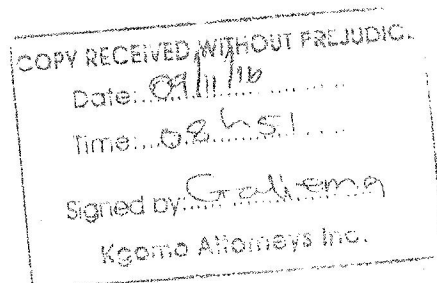 COPY RECEIVED WITHOUT PREJUDIC.
Date: 09/11/16
Time: 08h51
Signed by:
Kgomo Attorneys Inc.